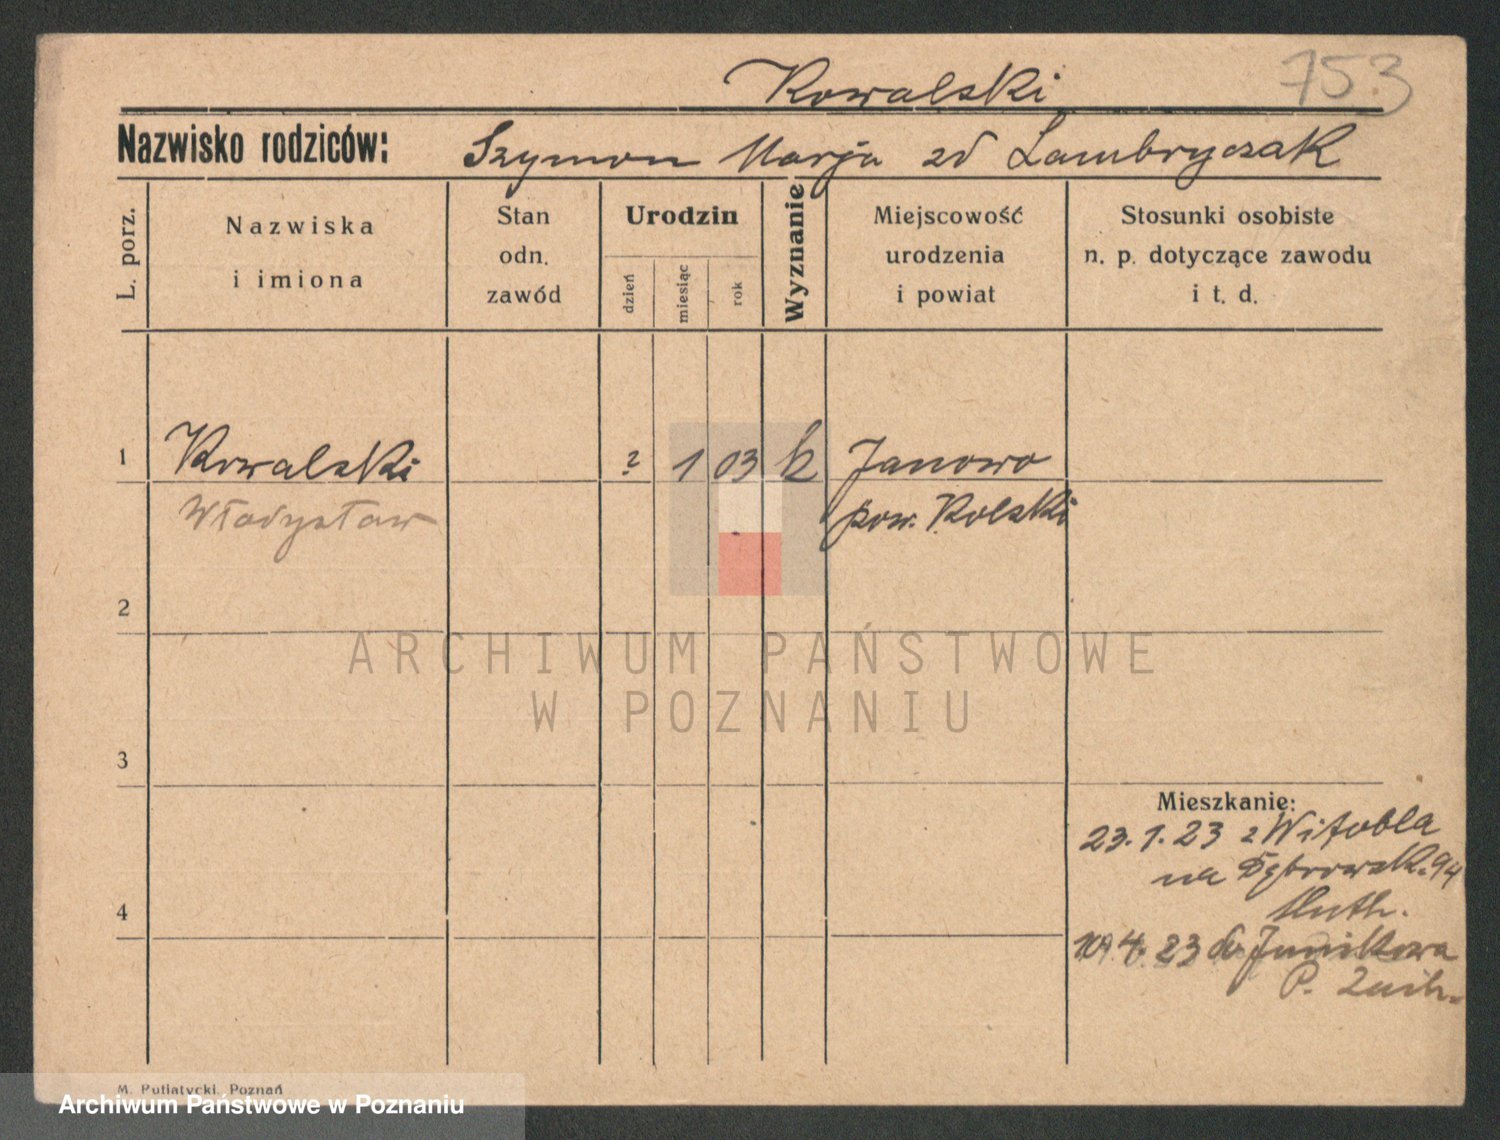 753
Kowalski
Nazwisko rodziców: Szymon Marja zd Lambryczak
L. porz.
Nazwiska i imiona
Stan odn. zawód
Urodzin
dzień
miesiąc
rok
Wyznanie
Miejscowość urodzenia i powiat
Stosunki osobiste n. p. dotyczące zawodu i t. d.
1 Kowalski ? 1 03 k Janowo
Władysław pow. Kolski
2
ARCHIWUM PAŃSTWOWE
W POZNANIU
3
Mieszkanie:
23.1.23 z Witobla
na Dąbrowsk. 94
4
4. 23 do Junikowa
P.
M. Putiatycki, Poznań
Archiwum Państwowe w Poznaniu